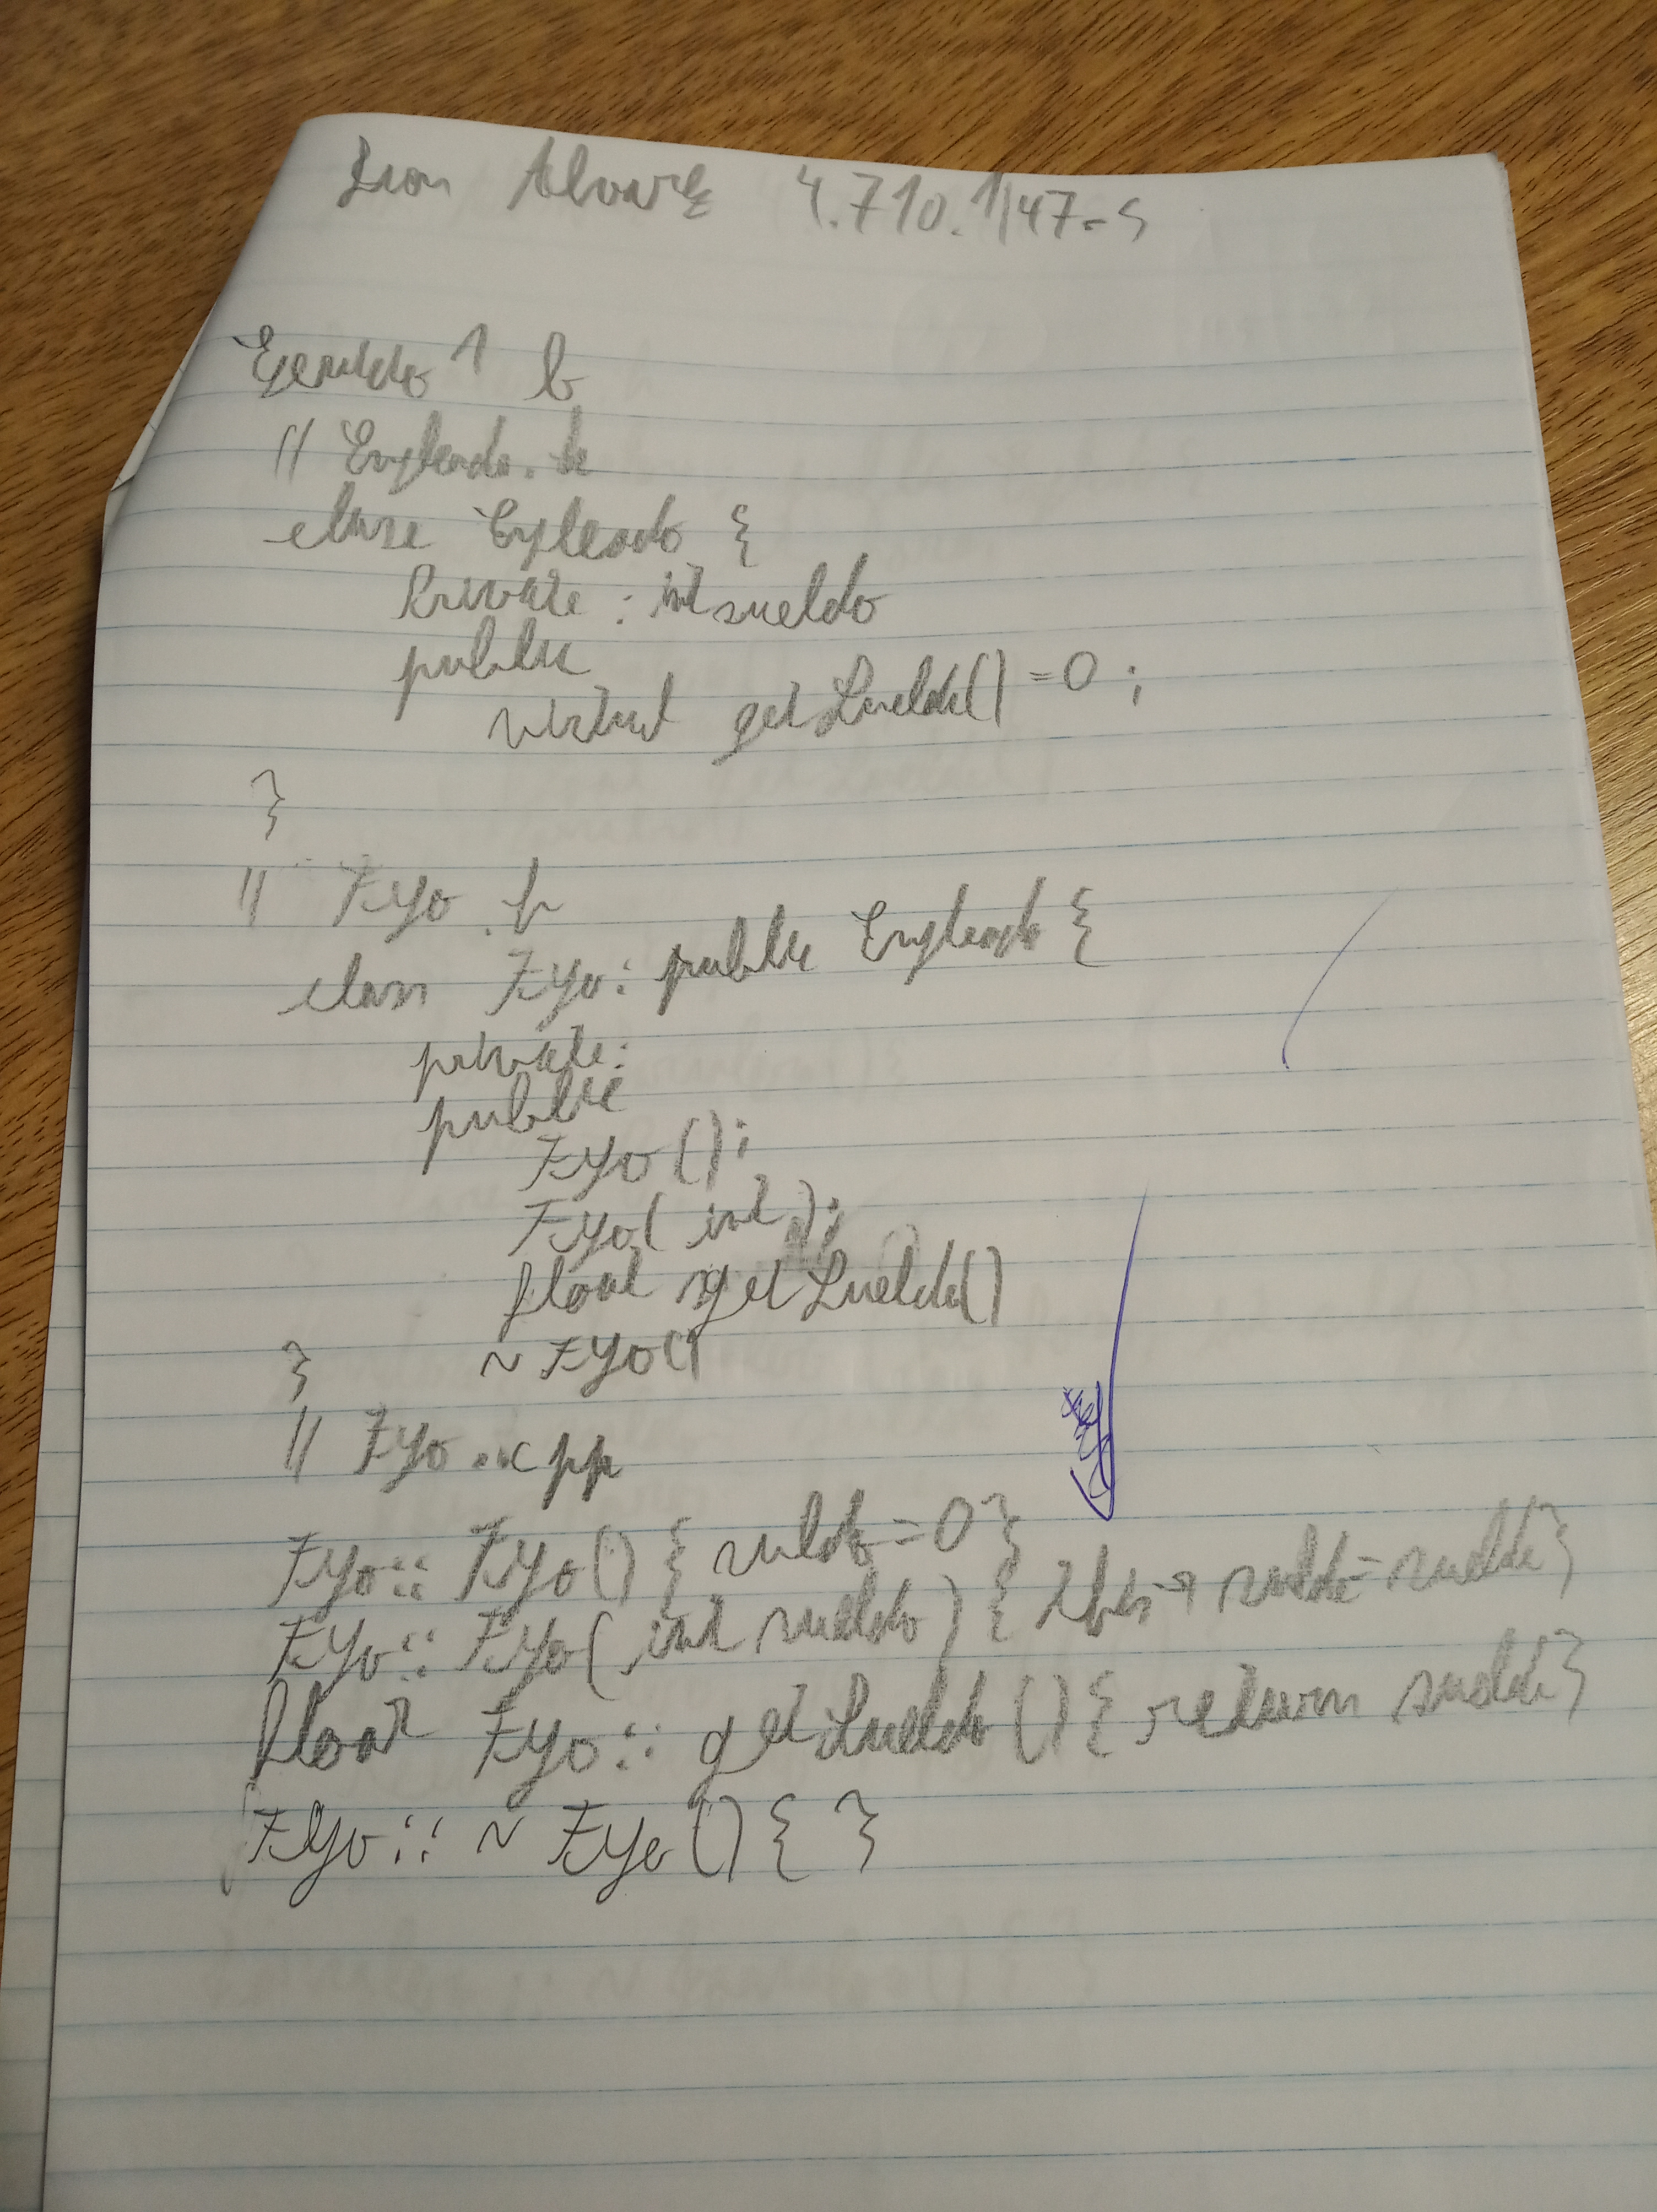 Alvarez 4.710.147-5
Ejercicio 1 b
// Empleado.h
class Empleado {
Private : int sueldo
public
virtual getSueldo() = 0 ;
}
// Fijo . h
class Fijo : public Empleado {
private:
public
Fijo ();
Fijo ( int );
float getSueldo()
~ Fijo()
}
// Fijo .cpp
Fijo :: Fijo () { sueldo = 0 }
Fijo :: Fijo ( int sueldo ) { this -> sueldo = sueldo }
float Fijo :: getSueldo () { return sueldo }
Fijo :: ~ Fijo () { }